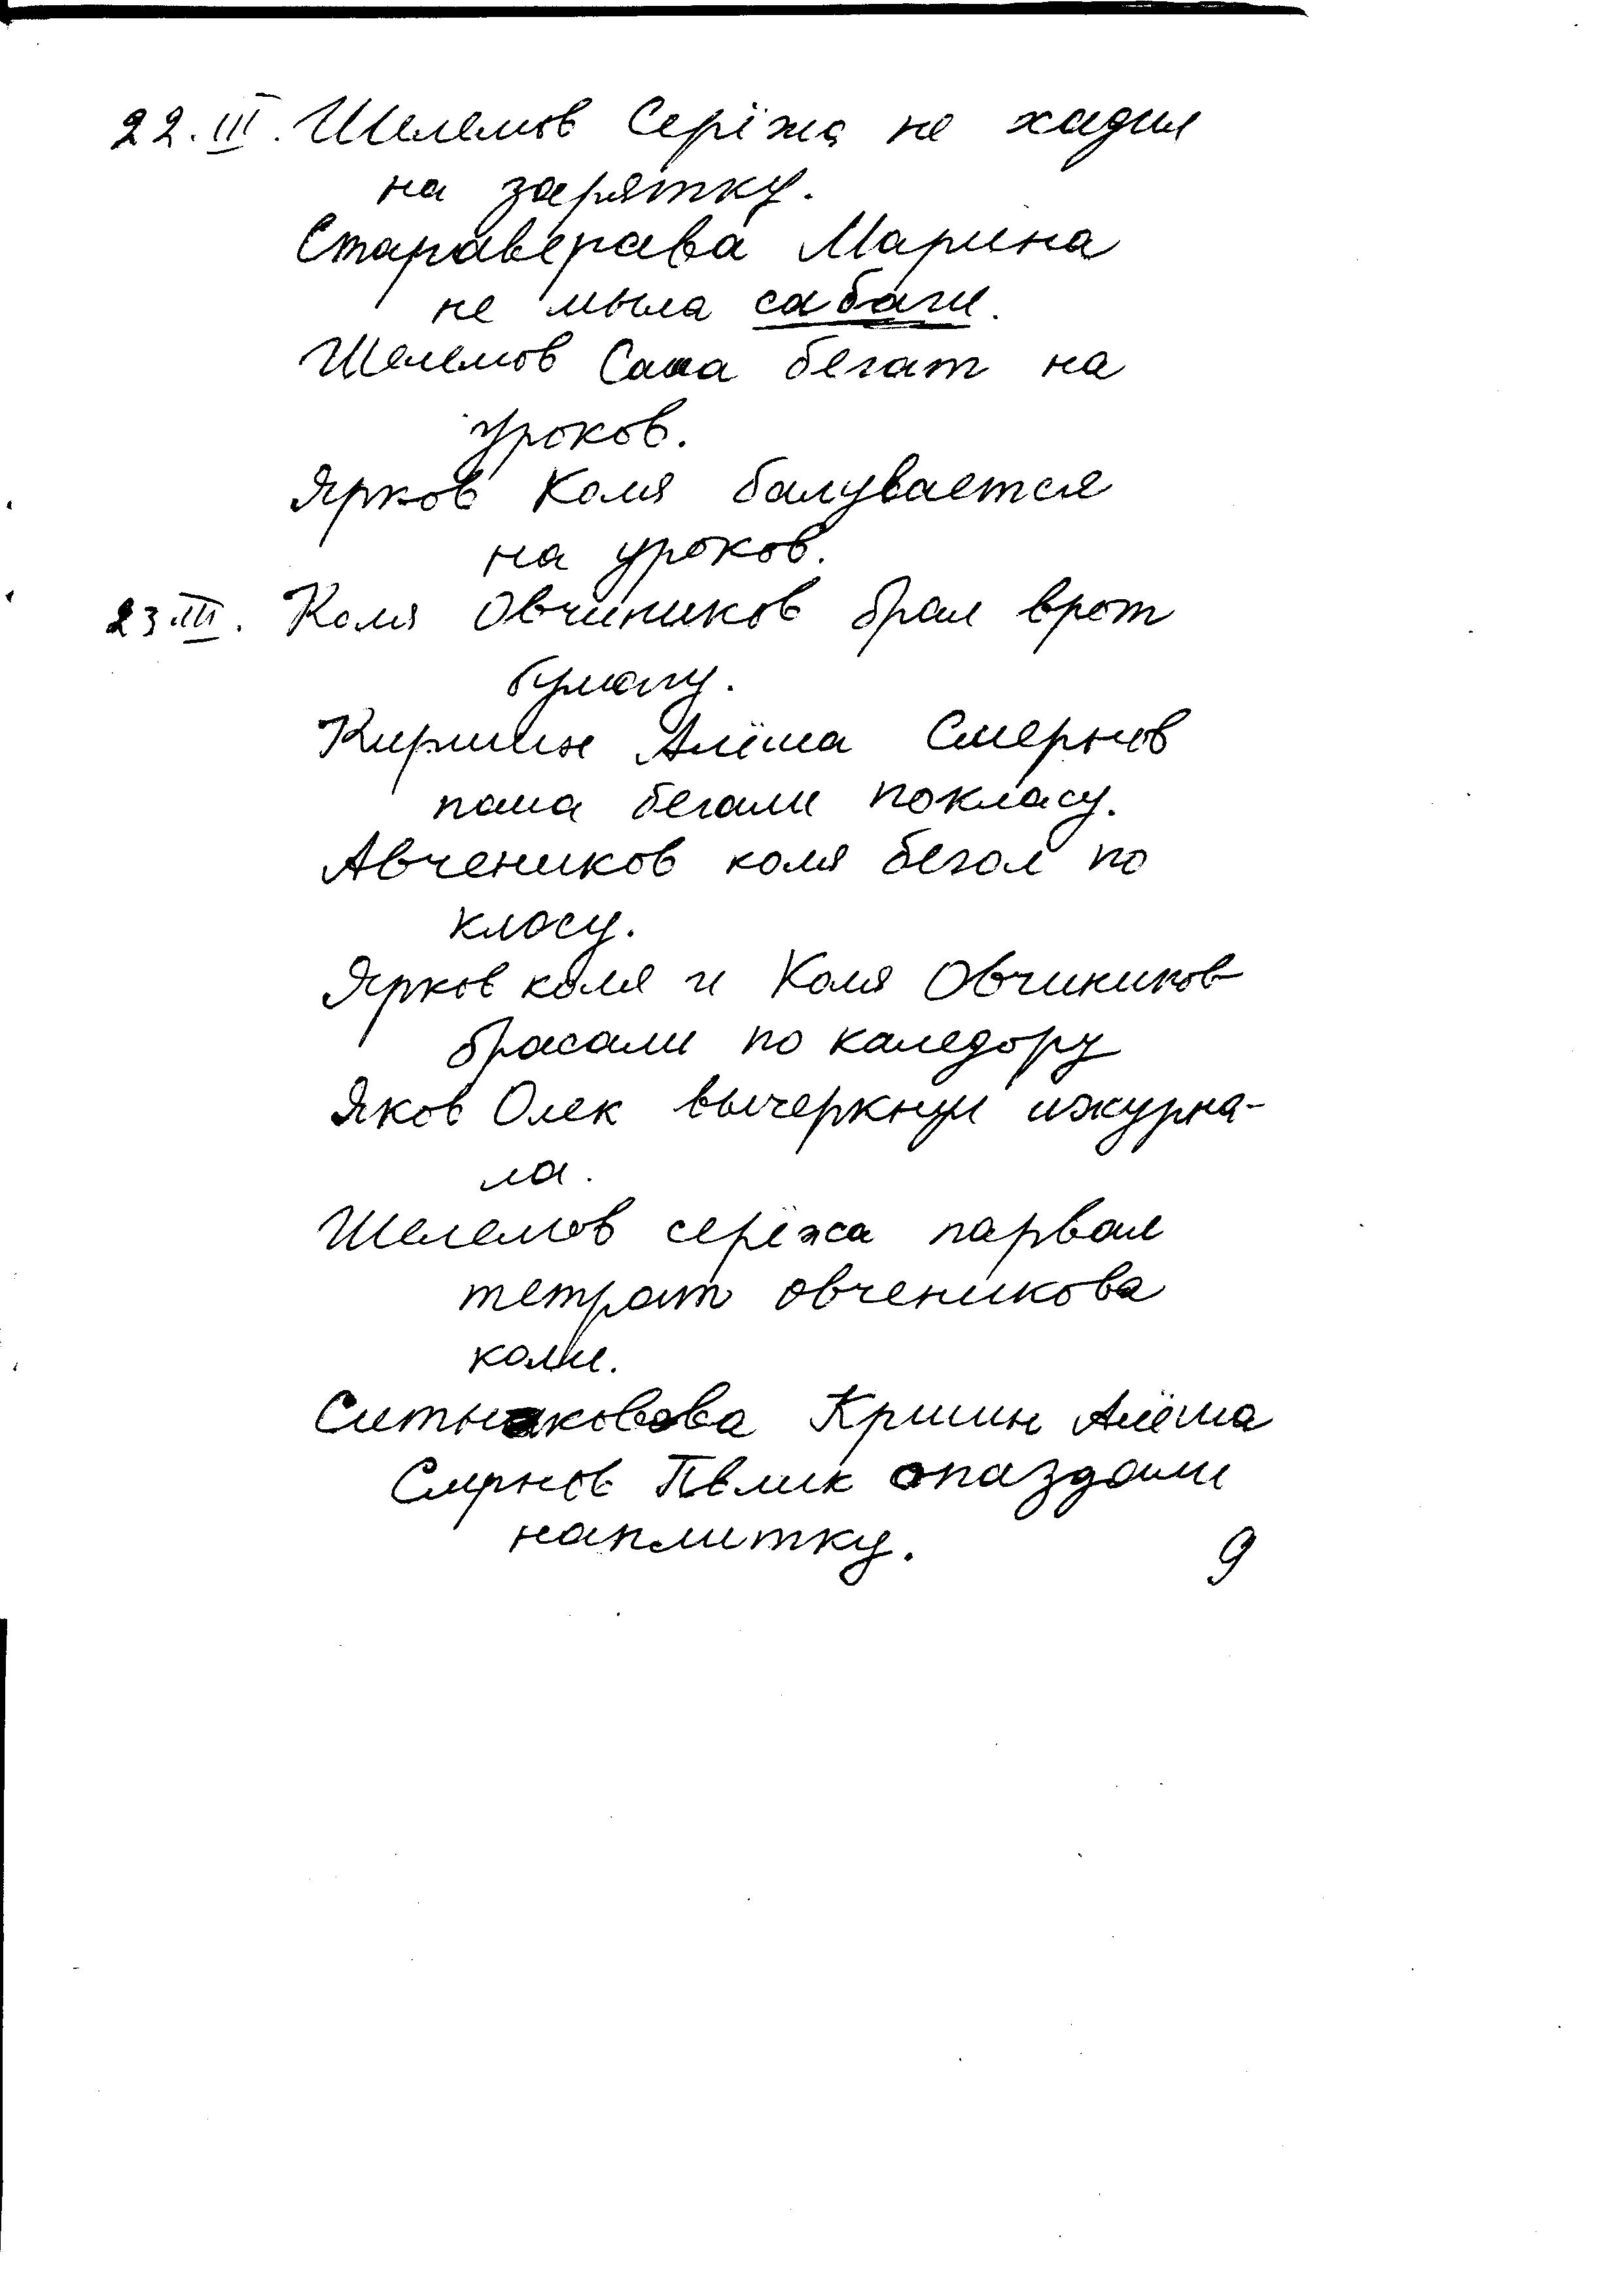 22.III. Шелемов Серёжа не хадил
на зарятку.
Стараверава Марина
не мыла сабаги.
Шелемов Саша бегат на
уроков.
Ярков Коля балувается
на уроков.
23.III. Коля Овчиников брал врот
бумагу.
Киршин Алёша Смернов
паша бегали покласу.
Авчеников коля бегал по
класу.
Ярков коля и Коля Овчиников
брасали по каледору
Яков Олек вычеркнул ижурна-
ла.
Шелемов серёжа парвал
тетрат овченикова
коли.
Ситнаковова Кршин Алёша
Смрнов Пвлик опаздали
наплитку.
9